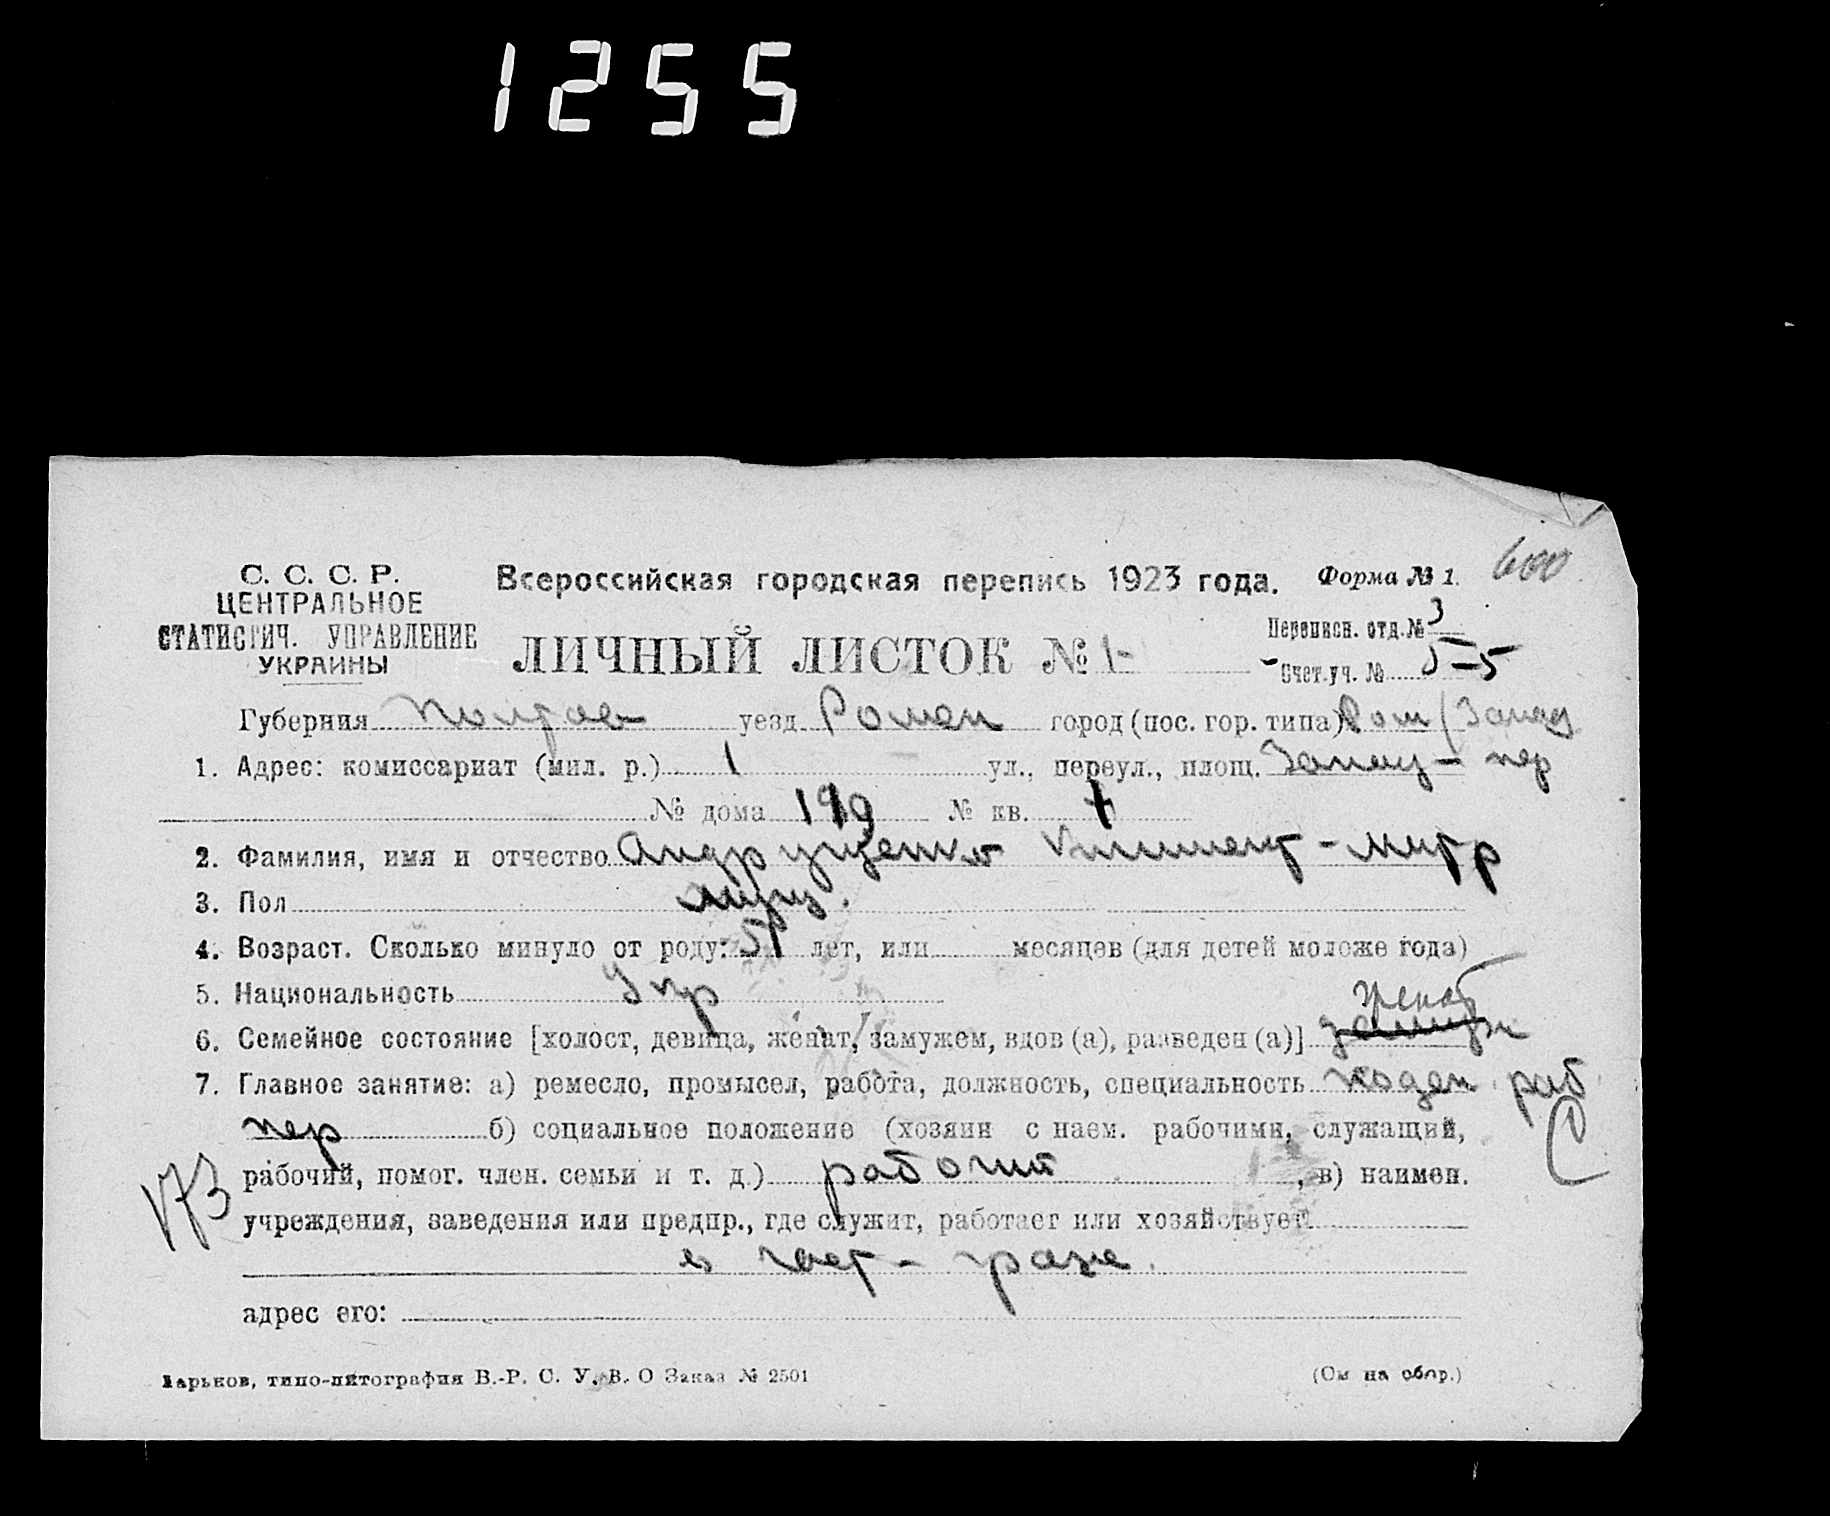 1255
С. С. С. Р.
ЦЕНТРАЛЬНОЕ
СТАТИСТИЧ. УПРАВЛЕНИЕ
УКРАИНЫ
Всероссийская городская перепись 1923 года.
Форма № 1.
600
ЛИЧНЫЙ ЛИСТОК № 1-
Переписн. отд. № 3
Счет. уч. № 5-5
Губерния Полтав уезд Ромен город (пос. гор. типа) Ром
1. Адрес: комиссариат (мил. р.) 1 ул., переул., площ. пер
№ дома № кв.
2. Фамилия, имя и отчество Андрущенко Климент - Митр
3. Пол муж.
4. Возраст. Сколько минуло от роду: лет, или месяцев (для детей моложе года)
5. Национальность Укр
6. Семейное состояние [холост, девица, женат, замужем, вдов (а), разведен (а)] женат
7. Главное занятие: а) ремесло, промысел, работа, должность, специальность поден раб
б) социальное положение (хозяин с наем. рабочими, служащий,
рабочий, помог. член. семьи и т. д.) рабочий, в) наимен.
173
учреждения, заведения или предпр., где служит, работает или хозяйствует
в част-
адрес его:
Харьков, типо-литография В.-Р. С. У. В. О Заказ № 2501
(См на обор.)